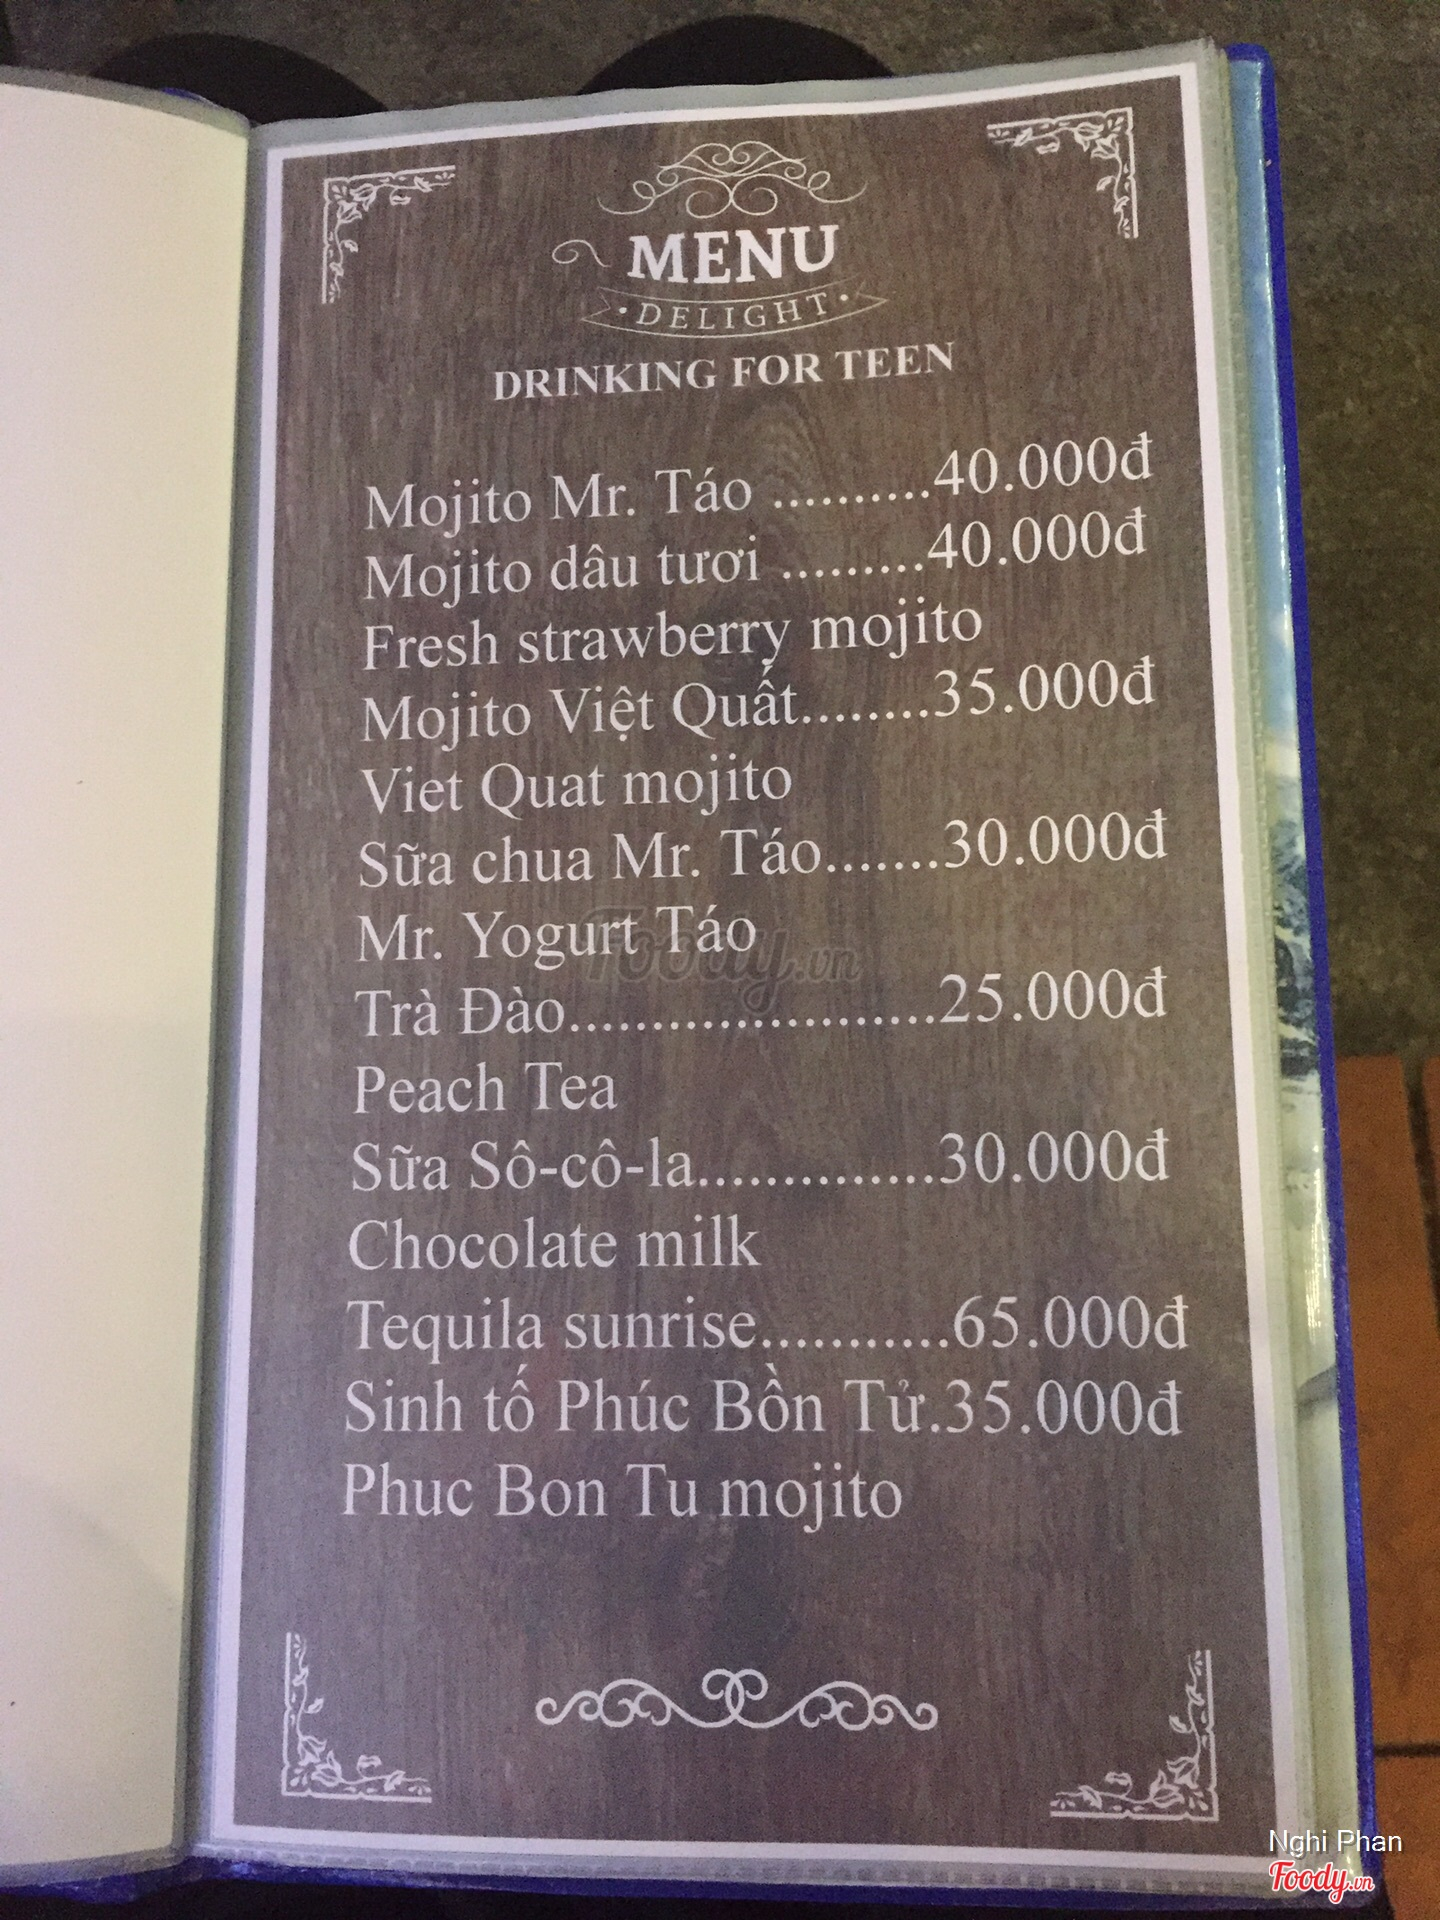 MENU
• DELIGHT •
DRINKING FOR TEEN
Mojito Mr. Táo ..........40.000đ
Mojito dâu tươi .........40.000đ
Fresh strawberry mojito
Mojito Việt Quất........35.000đ
Viet Quat mojito
Sữa chua Mr. Táo.......30.000đ
Mr. Yogurt Táo
Trà Đào......................25.000đ
Peach Tea
Sữa Sô-cô-la..............30.000đ
Chocolate milk
Tequila sunrise...........65.000đ
Sinh tố Phúc Bồn Tử.35.000đ
Phuc Bon Tu mojito
Foody.vn
Nghi Phan
Foody.vn